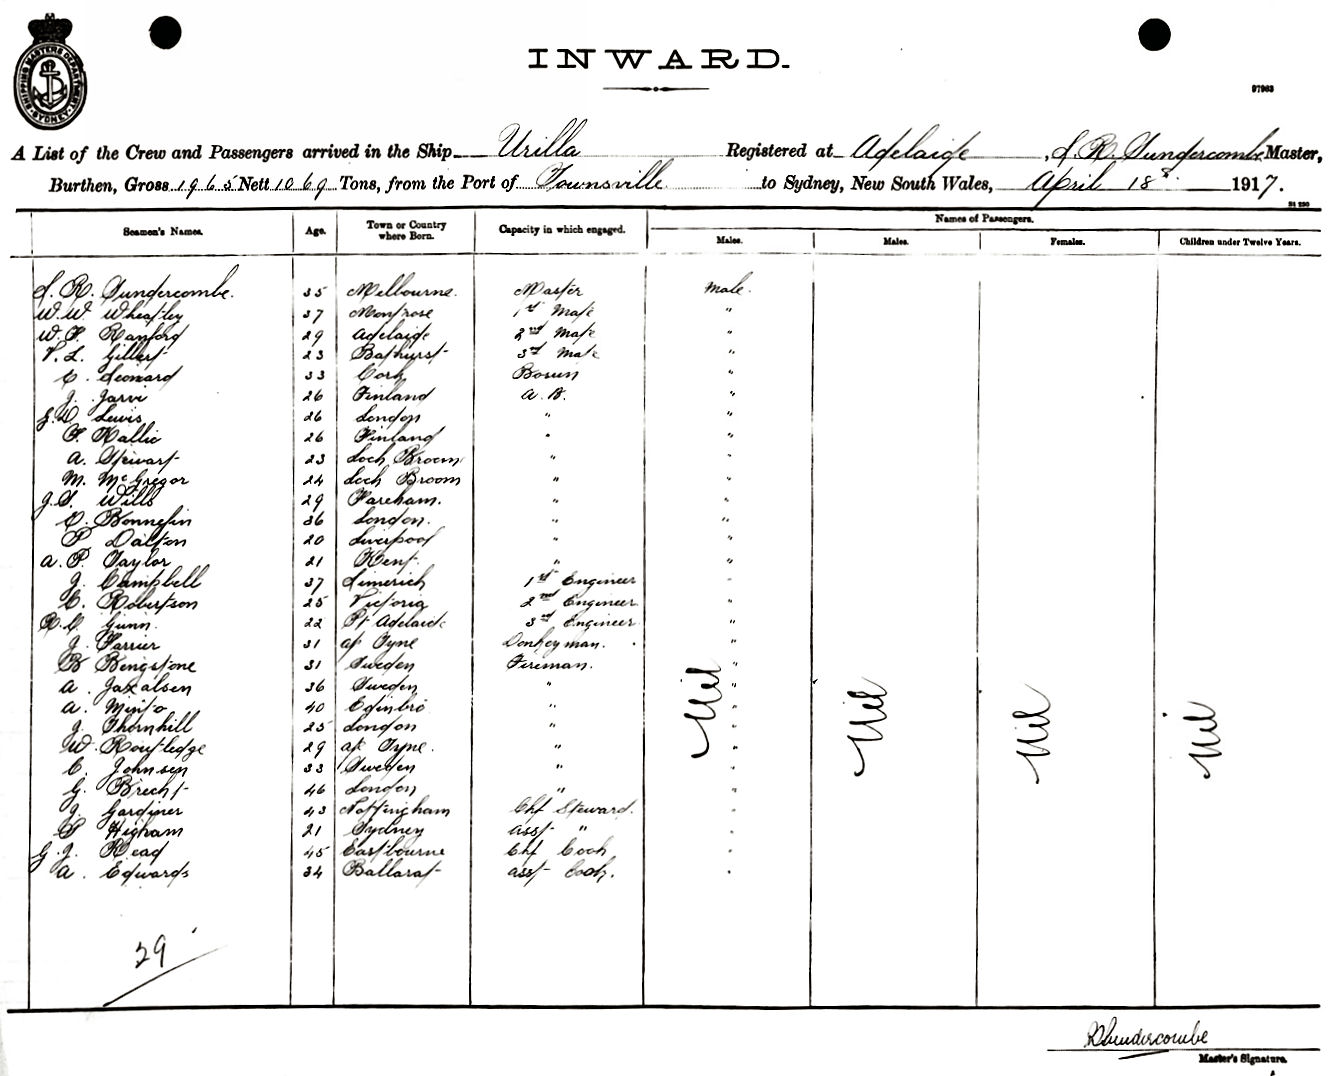 SHIPPING MASTERS DEPARTMENT SYDNEY
INWARD.
97963
A List of the Crew and Passengers arrived in the Ship Urilla Registered at Adelaide, S. R. Sundercombe Master,
Burthen, Gross 1965 Nett 1069 Tons, from the Port of Townsville to Sydney, New South Wales, April 18th 1917.
Names of Passengers.
Seamen's Names. Age. Town or Country where Born. Capacity in which engaged. Males. Males. Females. Children under Twelve Years.
S. R. Sundercombe. 35 Melbourne. Master Male.
W. W Wheatley 37 Montrose 1st Mate "
W. F. Ranford 29 Adelaide 2nd Mate "
V. L. Gillert 23 Bathurst 3rd Mate "
C. Leonard 33 Cork Bosun "
J. Jarvi 26 Finland A. B. "
J. D. Lewis 26 London " "
F. Kallio 26 Finland " "
A. Stewart 23 Loch Broom " "
M. McGregor 24 Loch Broom " "
J. S. Wills 29 Fareham. " "
C. Bonnefin 36 London. " "
P Dalton 20 Liverpool " "
A. P. Taylor 21 Kent. " "
J. Campbell 37 Limerick 1st Engineer "
C. Robertson 25 Victoria 2nd Engineer "
R. C. Gunn. 22 Pt Adelaide 3rd Engineer "
J. Farrier 31 a/ Tyne Donkeyman. "
B Bengstone 31 Sweden Fireman. "
A. Jaxalsen 36 Sweden " "
A. Minto 40 Edinbro " "
J. Thornhill 25 London " "
W. Routledge 29 a/ Tyne. " "
C. Johnsen 33 Sweden " "
G. Brecht 46 London " "
J. Gardiner 43 Nottingham Chf Steward. "
P Higham 21 Sydney asst " "
G. J. Read 45 Eastbourne Chf Cook "
A. Edwards 34 Ballarat asst Cook. "
Nil Nil Nil Nil
29
Sundercombe
Master's Signature.